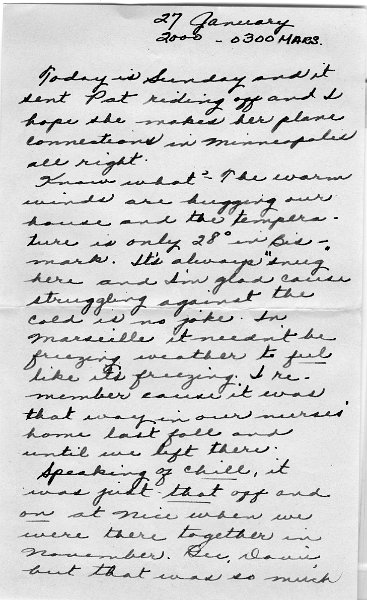 27 January
2000 - 0300 MARS.
Today is Sunday and it
sent Pat riding off and I
hope she makes her plane
connections in Minneapolis
all right.
Know what? The warm
winds are hugging our
house and the tempera-
ture is only 28° in Bis-
mark. It's always "snug"
here and I'm glad cause
struggling against the
cold is no joke. In
Marseille it needn't be
freezing weather to feel
like it's freezing. I re-
member cause it was
that way in our nurses'
home last fall and
until we left there.
Speaking of chill, it
was just that off and
on at Nice when we
were there together in
November. Gee, Davie,
but that was so much